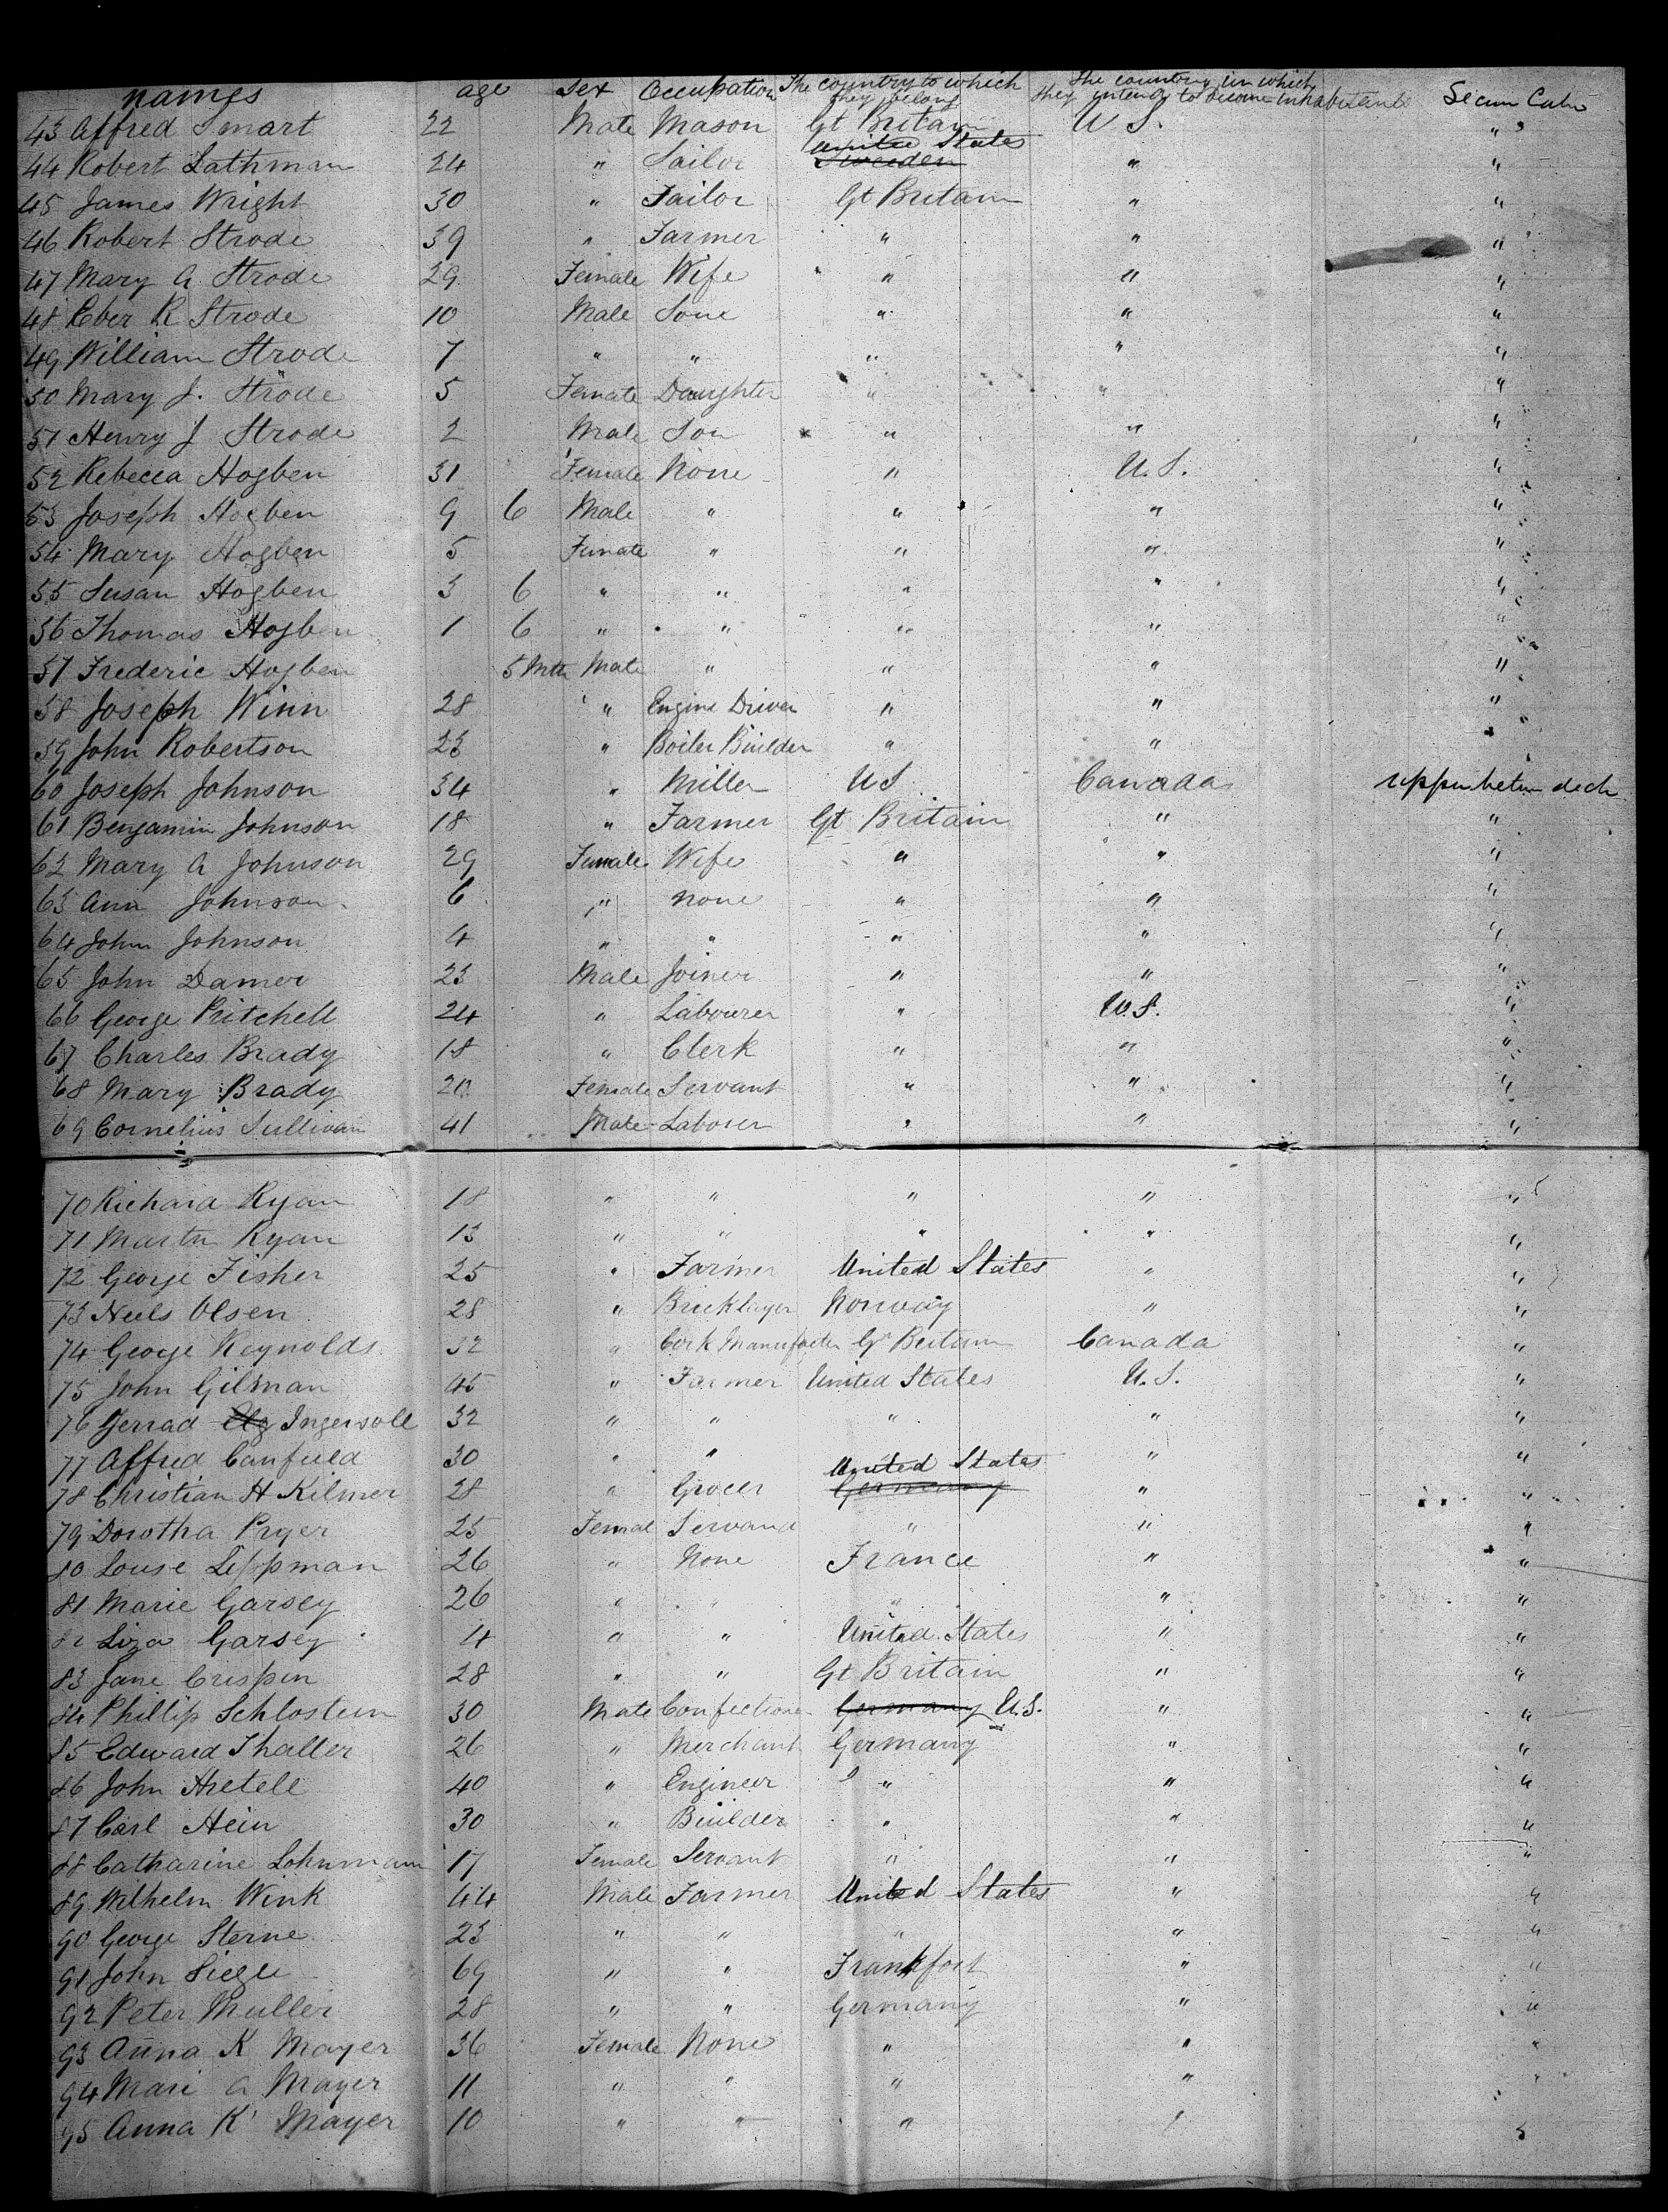 names age Sex Occupation The country to which they belong the country in which they intend to become inhabitants
43 Alfred Smart 22 Male Mason Gt Britain U S. "
44 Robert Lathman 24 " Sailor United States Sweeden " "
45 James Wright 30 " Tailor Gt Britain " "
46 Robert Strode 39 " Farmer " " "
47 Mary A Strode 29 Female Wife " " "
48 Eber R Strode 10 Male Sone " " "
49 William Strode 7 " " " " "
50 Mary J. Strode 5 Female Daughter " " "
51 Henry J Strode 2 Male Son " " "
52 Rebecca Hogben 31 Female None " U.S. "
53 Joseph Hogben 9 6 Male " " " "
54 Mary Hogben 5 Female " " " "
55 Susan Hogben 3 6 " " " " "
56 Thomas Hogben 1 6 " " " " "
57 Frederic Hogben 5 Mth Male " " " "
58 Joseph Winn 28 " Engine Driver " " "
59 John Robertson 23 " Boiler Builder " " "
60 Joseph Johnson 34 " Miller US Canada
61 Benjamin Johnson 18 " Farmer Gt Britain " "
62 Mary A Johnson 29 Female Wife " " "
63 Ann Johnson 6 " None " " "
64 John Johnson 4 " " " " "
65 John Damer 23 Male Joiner " " "
66 George Pritchell 24 " Labourer " U.S. "
67 Charles Brady 18 " Clerk " " "
68 Mary Brady 20 Female Servant " " "
69 Cornelius Sullivan 41 Male Laborer " " "
70 Richard Ryan 18 " " " " "
71 Martin Ryan 13 " " " " "
72 George Fisher 25 " Farmer United States " "
73 Neels Olsen 28 " Bricklayer Norway " "
74 George Reynolds 32 " Cork Manufacter Gt Britain Canada "
75 John Gilman 45 " Farmer United States U.S. "
76 Jerrad Ingersoll 32 " " " " "
77 Alfred Canfield 30 " " " "
78 Christian H Kilmer 28 " Grocer United States Germany " "
79 Dorotha Pryer 25 Femal Servand " " "
80 Louse Lippman 26 " None France " "
81 Marie Garsey 26 " " " " "
82 Liza Garsey 4 " " United States " "
83 Jane Crispin 28 " " Gt Britain " "
84 Phillip Schlostein 30 Male Confectioner Germany U.S. " "
85 Edward Thaller 26 " Merchant Germany " "
86 John Hretell 40 " Engineer " " "
87 Carl Hein 30 " Builder " " "
88 Catharine Lohnmann 17 Female Servant " " "
89 Wilhelm Wink 44 Male Farmer United States " "
90 George Sterne 23 " " " " "
91 John Siegle 69 " " Frankfort " "
92 Peter Muller 28 " " Germany " "
93 Anna K Mayer 36 Female None " " "
94 Mari A Mayer 11 " " " " "
95 Anna K Mayer 10 " " " " "